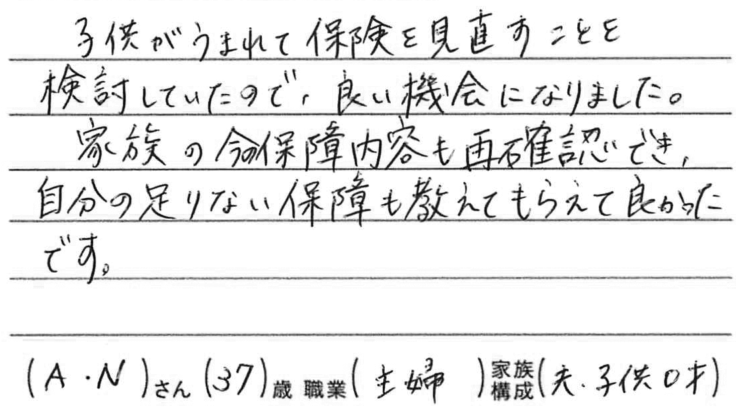 子供がうまれて保険を見直すことを
検討していたので、良い機会になりました。
家族の今の保障内容も再確認でき、
自分の足りない保障も教えてもらえて良かった
です。
(A・N)さん(37)歳 職業(主婦)家族構成(夫・子供0才)